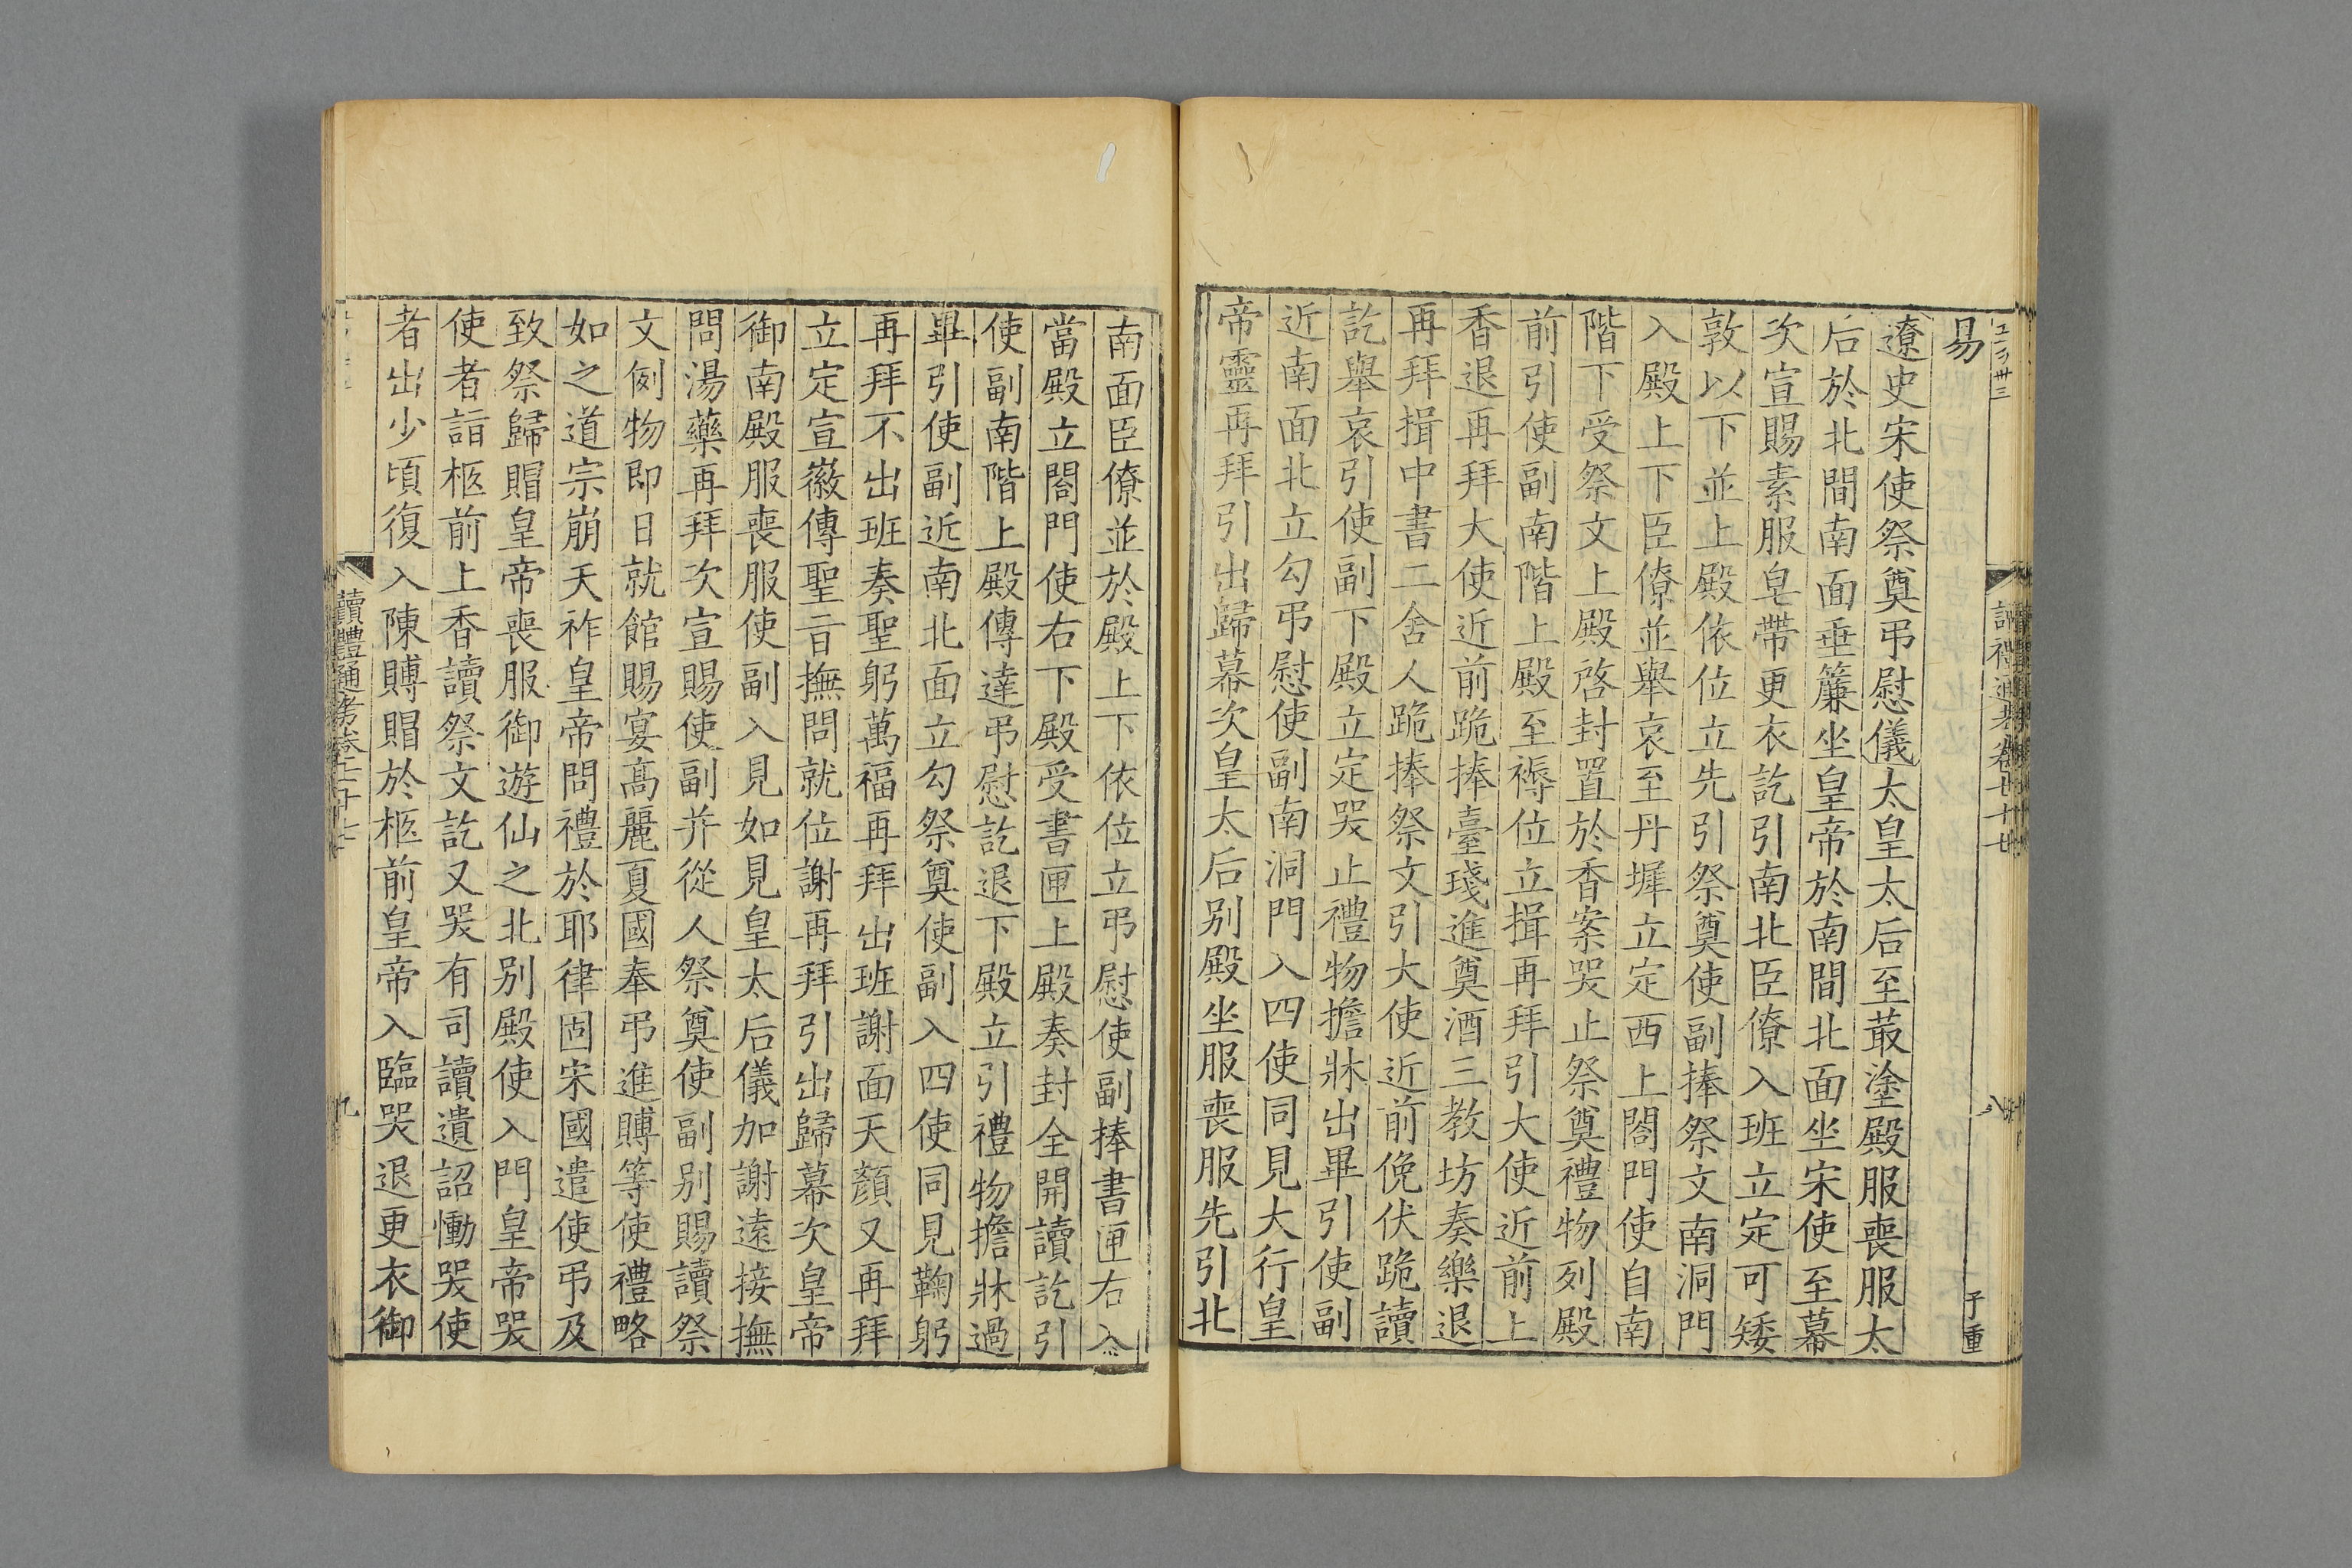 易
遼史宋使祭奠弔慰儀太皇太后至菆塗殿服喪服太
后於北間南面垂簾坐皇帝於南間北面坐宋使至幕
次宣賜素服皂帶更衣訖引南北臣僚入班立定可矮
敦以下並上殿依位立先引祭奠使副捧祭文南洞門
入殿上下臣僚並舉哀至丹墀立定西上閤門使自南
階下受祭文上殿啓封置於香案哭止祭奠禮物列殿
前引使副南階上殿至褥位立揖再拜引大使近前上
香退再拜大使近前跪捧臺琖進奠酒三教坊奏樂退
再拜揖中書二舍人跪捧祭文引大使近前俛伏跪讀
訖舉哀引使副下殿立定哭止禮物擔牀出畢引使副
近南面北立勾弔慰使副南洞門入四使同見大行皇
帝靈再拜引出歸幕次皇太后別殿坐服喪服先引北
南面臣僚並於殿上下依位立弔慰使副捧書匣右入
當殿立閤門使右下殿受書匣上殿奏封全開讀訖引
使副南階上殿傳達弔慰訖退下殿立引禮物擔牀過
畢引使副近南北面立勾祭奠使副入四使同見鞠躬
再拜不出班奏聖躬萬福再拜出班謝面天顏又再拜
立定宣徽傳聖旨撫問就位謝再拜引出歸幕次皇帝
御南殿服喪服使副入見如見皇太后儀加謝遠接撫
問湯藥再拜次宣賜使副并從人祭奠使副別賜讀祭
文例物即日就館賜宴高麗夏國奉弔進賻等使禮略
如之道宗崩天祚皇帝問禮於耶律固宋國遣使弔及
致祭歸賵皇帝喪服御遊仙之北別殿使入門皇帝哭
使者詣柩前上香讀祭文訖又哭有司讀遺詔慟哭使
者出少頃復入陳賻賵於柩前皇帝入臨哭退更衣御
讀禮通考卷七十七
八
子重
讀禮通考卷七十七
九